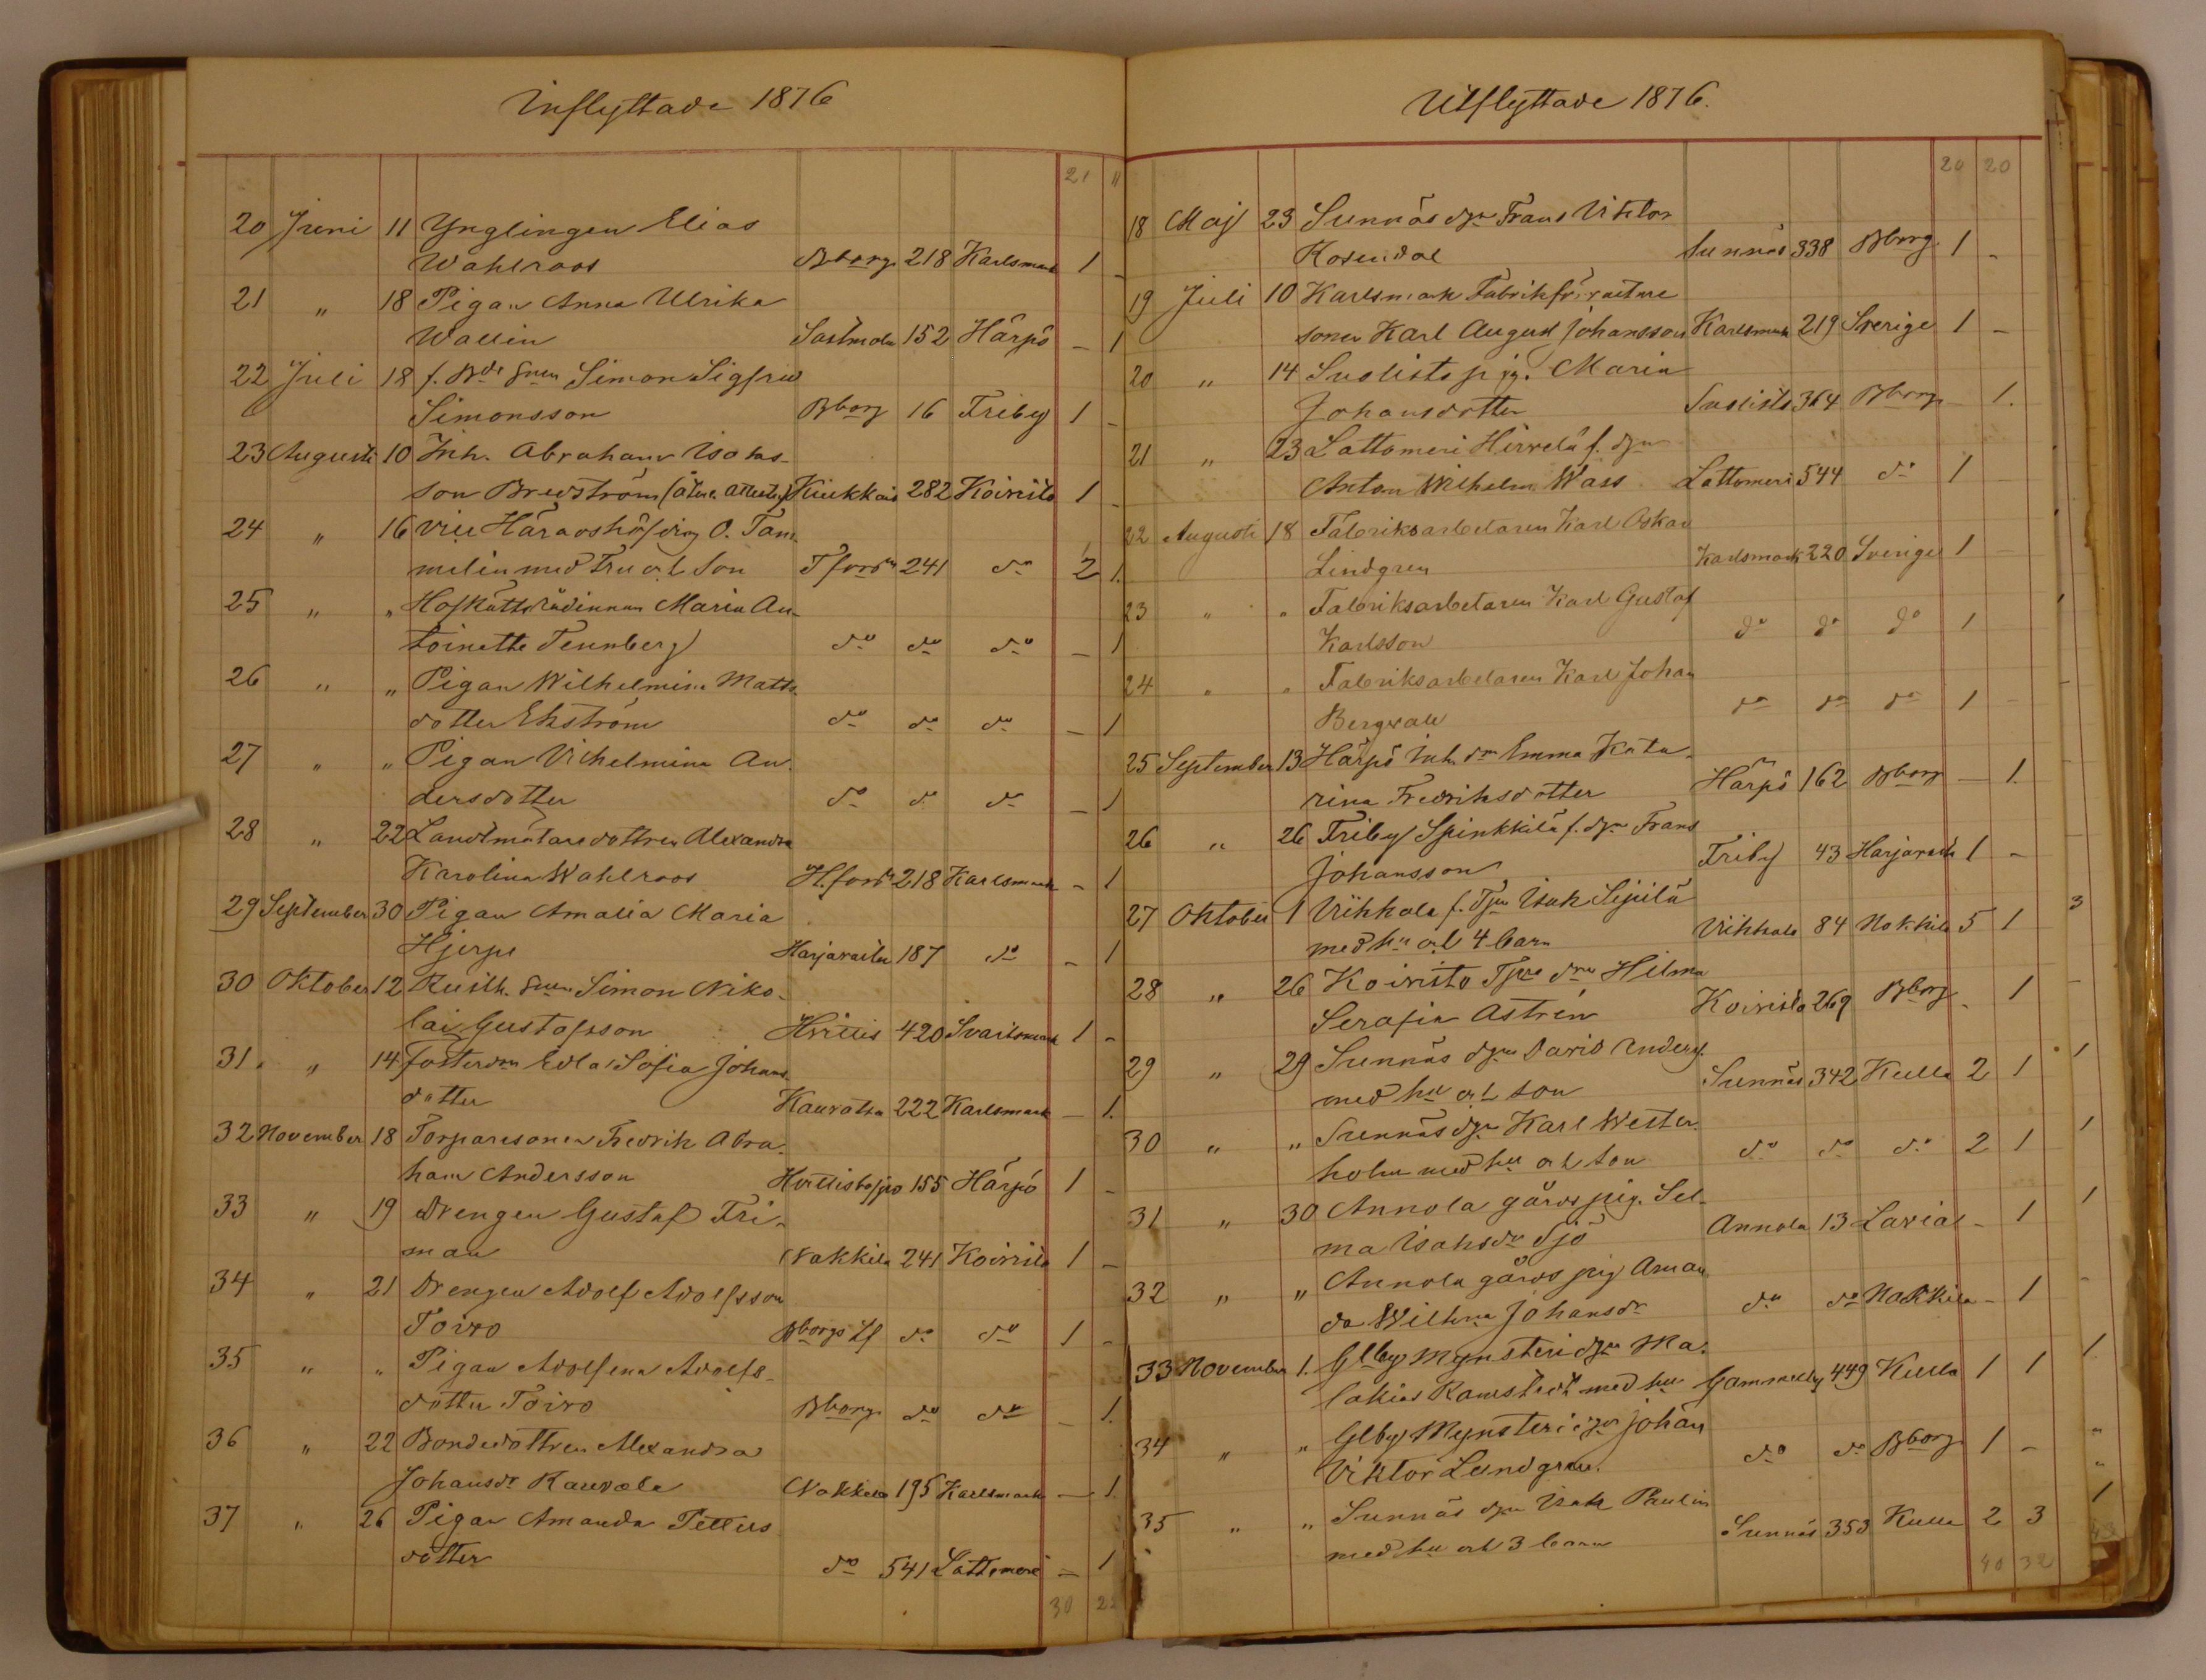 Inflyttade 1876
21 11
20 Juni 11 Ynglingen Elias
Wahlroos Bborg 218 Karlsmark 1 -
21 " 18 Pigan Anna Ulrika
Wallin Sastmola 152 Härpö - 1
22 Juli 18 f. Bde Snen Simon Sigfrid
Simonsson Bborg 16 Friby 1 -
23 Augusti 10 Inh. Abraham Isaks-
son Bredström Kiukkais 282 Koivisto 1
24 " 16 Vice Häradshöfding O. Tam-
melin med Fru och Son Tfors 241 do 2 1.
25 " " Hofrättsrådinnan Maria An-
toinette Tennberg do do do - 1
26 " " Pigan Wilhelmina Matts-
dotter Ekström do do do - 1
27 " " Pigan Vilhelmina An-
dersdotter do do do - 1
28 " 22 Landtmätaredottren Alexandra
Karolina Wahlroos H.fors 218 Karlsmark - 1
29 September 30 Pigan Amalia Maria
Hjerpe Harjavalta 187 do - 1
30 Oktober 12 Rusth. Snen Simon Niko-
lai Gustafsson Hvittis 420 Svartsmark 1 -
31 " 14 Fosterdrn Edla Sofia Johans-
dotter Kauvatsa 222 Karlsmark - 1.
32 November 18 Torparesonen Fredrik Abra-
ham Andersson Hvittisbofjärd 155 Härpö 1 -
33 " 19 Drengen Gustaf Fri-
man Nakkila 241 Koivisto 1 -
34 " 21 Drengen Adolf Adolfsson
Toivo Bborgs Lf do do 1 -
35 " " Pigan Adolfina Adolfs-
dotter Toivo Bborg do do - 1.
36 " 22 Bondedottren Alexandra
Johansdr Rauvola Nakkila 195 Karlsmark - 1.
37 " 26 Pigan Amanda Petters
dotter do 541 Lattomeri - 1
30 22
Utflyttade 1876.
20 20
18 Maj 23 Sunnäs dgn Frans Viktor
Rosendal Sunnäs 338 Bborg 1 -
19 Juli 10 Karlsmark Fabriksförvaltare
sonen Karl August Johansson Karlsmark 219 Sverige 1 -
20 " 14 Suolisto pig. Maria
Johansdotter Suolisto 364 Bborg - 1.
21 " 23 Lattomeri Hirvelä f. dgn
Anton Wilhelm Wass Lattomeri 544 do 1 -
22 Augusti 18 Fabriksarbetaren Karl Oskar
Lindgren Karlsmark 220 Sverige 1 -
23 " " Fabriksarbetaren Karl Gustaf
Karlsson do do do 1
24 " " Fabriksarbetaren Karl Johan
Bergvall do do do 1 -
25 September 13 Härpö inh. dr Emma Kata-
rina Fredriksdotter Härpö 162 Bborg - 1.
26 " 26 Friby Spinkkilä f. dgn Frans
Johansson Friby 43 Harjavalta 1 -
27 Oktober 1 Vihkola f. Tjen Isak Sipilä
med hu och 4 barn Vihkola 84 Nakkila 5 1 3
28 " 26 Koivisto Tjre drn Hilma
Serafia Astrén Koivisto 269 Bborg - 1
29 " 29 Sunnäs dgn David Anders.
med hu och son Sunnäs 342 Kulla 2 1 1
30 " " Sunnäs dgn Karl Wester-
holm med hu och son do do do 2 1 1
31 " 30 Annola gårds pig. Sel-
ma Isaksdr Sjö Annola 13 Lavia - 1 1
32 " " Annola gårds pig Aman-
da Wilhna Johansdr do do Nakkila - 1 -
33 November 1. Glby Mynsteri dgn Ma-
lakias Ramstedt med hu Gammelby 449 Kulla 1 1 1
34 " " Glby Mynsteri dgn Johan
Viktor Lundgren. do do Bborg 1 - "
35 " " Sunnäs dgn Isak Paulin
med hu och 3 barn Sunnäs 353 Kulla 2 3 1
40 32